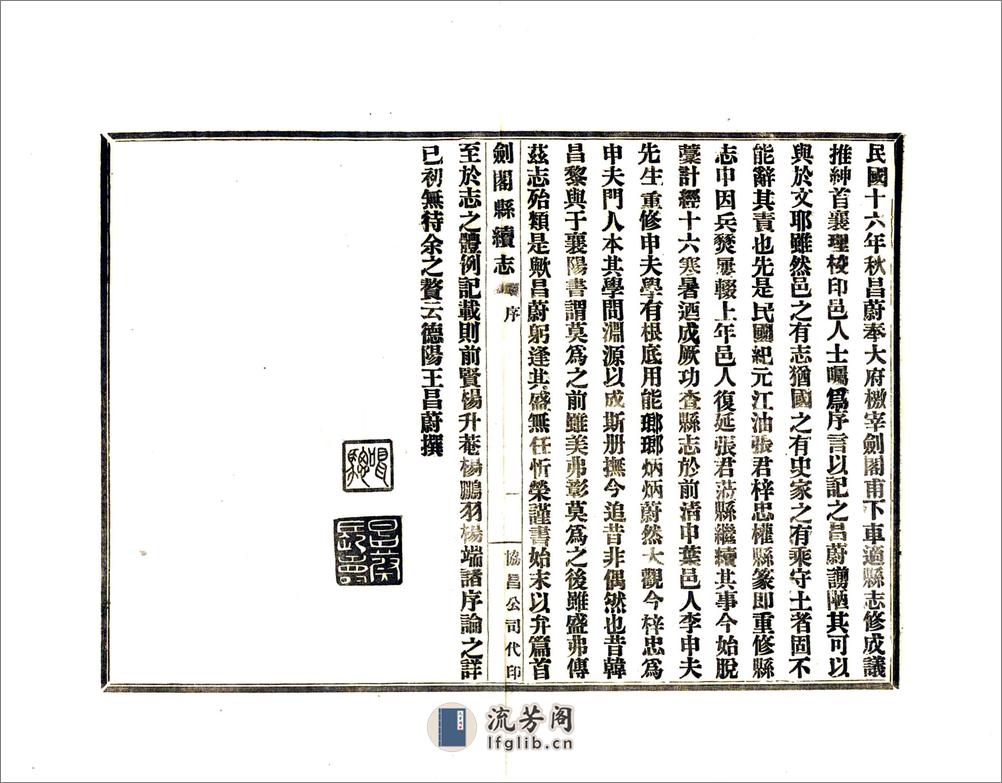 民國十六年秋昌蔚奉大府檄宰劍閣甫下車適縣志修成議
推紳首襄理校印邑人士囑爲序言以記之昌蔚譾陋其可以
與於文耶雖然邑之有志猶國之有史家之有乘守土者固不
能辭其責也先是民國紀元江油張君梓忠權縣篆即重修縣
志中因兵燹屢輟上年邑人復延張君蒞縣繼續其事今始脫
藁計經十六寒暑迺成厥功查縣志於前清中葉邑人李申夫
先生重修申夫學有根底用能瑯瑯炳炳蔚然大觀今梓忠爲
申夫門人本其學問淵源以成斯册撫今追昔非偶然也昔韓
昌黎與于襄陽書謂莫爲之前雖美弗彰莫爲之後雖盛弗傳
茲志殆類是歟昌蔚躬逢其盛無任忻榮謹書始末以弁篇首
劍閣縣續志 序 一 協昌公司代印
至於志之體例記載則前賢楊升菴楊鵬羽楊端諸序論之詳
已初無待余之贅云德陽王昌蔚撰
流芳阁
lfglib.cn